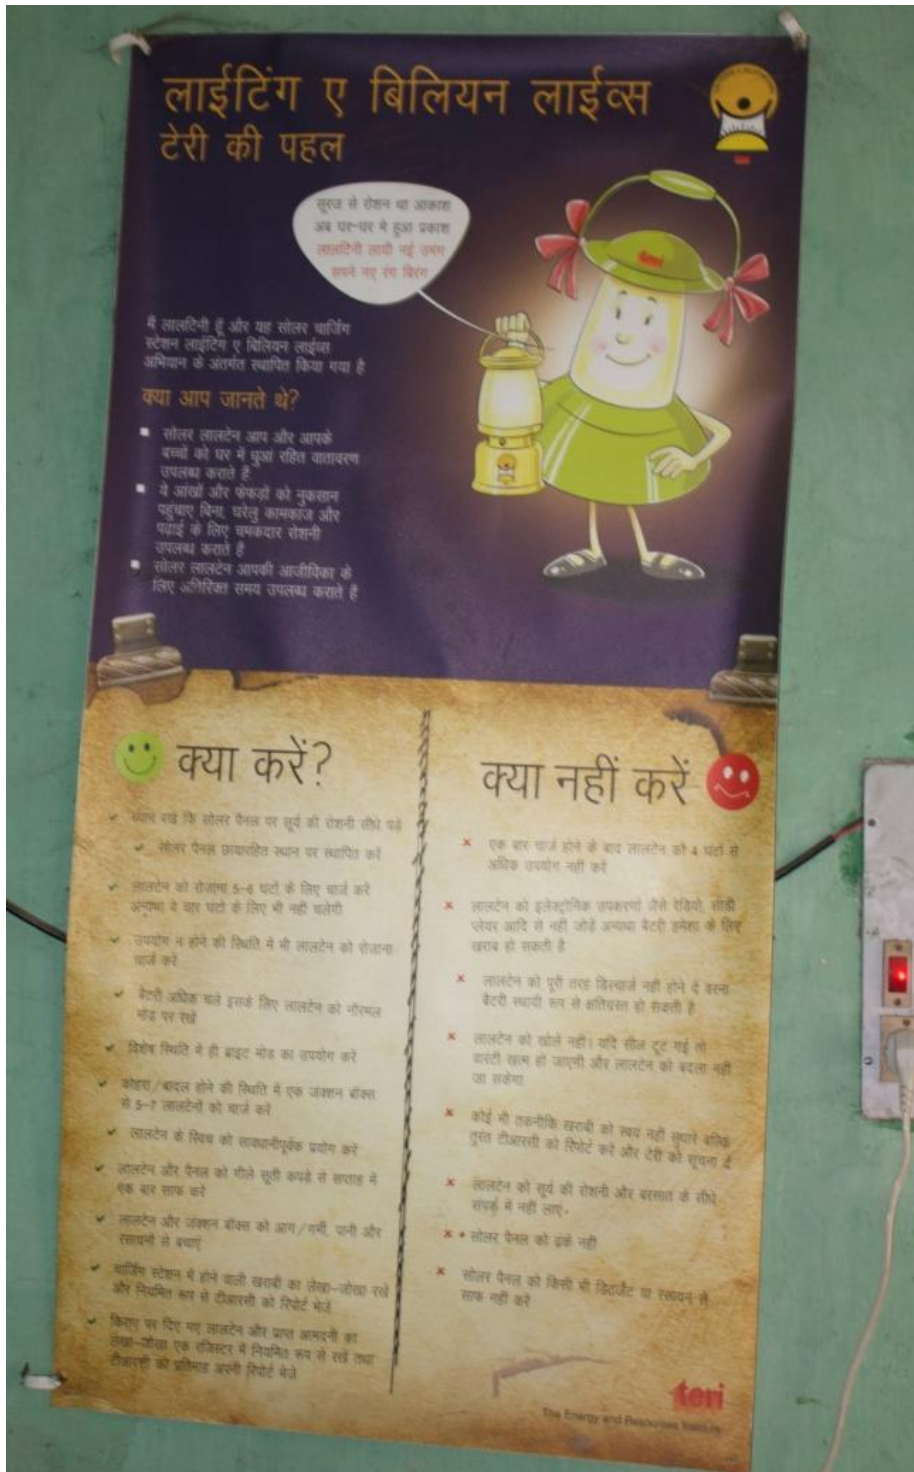 लाईटिंग ए बिलियन लाईव्स
टेरी की पहल
सूरज से रोशन था आकाश
अब घर-घर मे हुआ प्रकाश
लालटिनी लायी नई उमंग
सपने नए रंग बिरंग
teri
मैं लालटिनी हूँ और यह सोलर चार्जिंग
स्टेशन लाइटिंग ए बिलियन लाईव्स
अभियान के अंतर्गत स्थापित किया गया है
क्या आप जानते थे?
सोलर लालटेन आप और आपके
बच्चों को घर में धुआं रहित वातावरण
उपलब्ध कराते हैं
ये आंखों और फेफड़ों को नुकसान
पहुंचाए बिना, घरेलु कामकाज और
पढ़ाई के लिए चमकदार रोशनी
उपलब्ध कराते हैं
सोलर लालटेन आपकी आजीविका के
लिए अतिरिक्त समय उपलब्ध कराते हैं
क्या करें?
ध्यान रखे कि सोलर पैनल पर सूर्य की रोशनी सीधे पड़े
सोलर पैनल छायारहित स्थान पर स्थापित करें
लालटेन को रोजाना 5-6 घंटों के लिए चार्ज करें
अन्यथा ये चार घंटों के लिए भी नही चलेगी
उपयोग न होने की स्थिति में भी लालटेन को रोजाना
चार्ज करें
बैटरी अधिक चले इसके लिए लालटेन को नॉरमल
मोड पर रखें
विशेष स्थिति में ही ब्राइट मोड का उपयोग करें
कोहरा/बादल होने की स्थिति में एक जंक्शन बॉक्स
से 5-7 लालटेनों को चार्ज करें
लालटेन के स्विच को सावधानीपूर्वक प्रयोग करें
लालटेन और पैनल को गीले सूती कपड़े से सप्ताह में
एक बार साफ करें
लालटेन और जंक्शन बॉक्स को आग/गर्मी, पानी और
रसायनों से बचाएं
चार्जिंग स्टेशन में होने वाली खराबी का लेखा-जोखा रखें
और नियमित रूप से टीआरसी को रिपोर्ट भेजें
किराए पर दिए गए लालटेन और प्राप्त आमदनी का
लेखा-जोखा एक रजिस्टर में नियमित रूप से रखें तथा
टीआरसी को प्रतिमाह अपनी रिपोर्ट भेजें
क्या नहीं करें
एक बार चार्ज होने के बाद लालटेन को 4 घंटों से
अधिक उपयोग नहीं करें
लालटेन को इलेक्ट्रॉनिक उपकरणों जैसे रेडियो, सीडी
प्लेयर आदि से नहीं जोड़ें अन्यथा बैटरी हमेशा के लिए
खराब हो सकती है
लालटेन को पूरी तरह डिस्चार्ज नहीं होने दे वरना
बैटरी स्थायी रूप से क्षतिग्रस्त हो सकती है
लालटेन को खोलें नहीं। यदि सील टूट गई तो
वारंटी खत्म हो जाएगी और लालटेन को बदला नहीं
जा सकेगा
कोई भी तकनीकि खराबी को स्वयं नहीं सुधारे बल्कि
तुरंत टीआरसी को रिपोर्ट करें और टेरी को सूचना दें
लालटेन को सूर्य की रोशनी और बरसात के सीधे
संपर्क में नहीं लाएं
सोलर पैनल को ढकें नहीं
सोलर पैनल को किसी भी डिटर्जेंट या रसायन से
साफ नहीं करें
teri
The Energy and Resources Institute